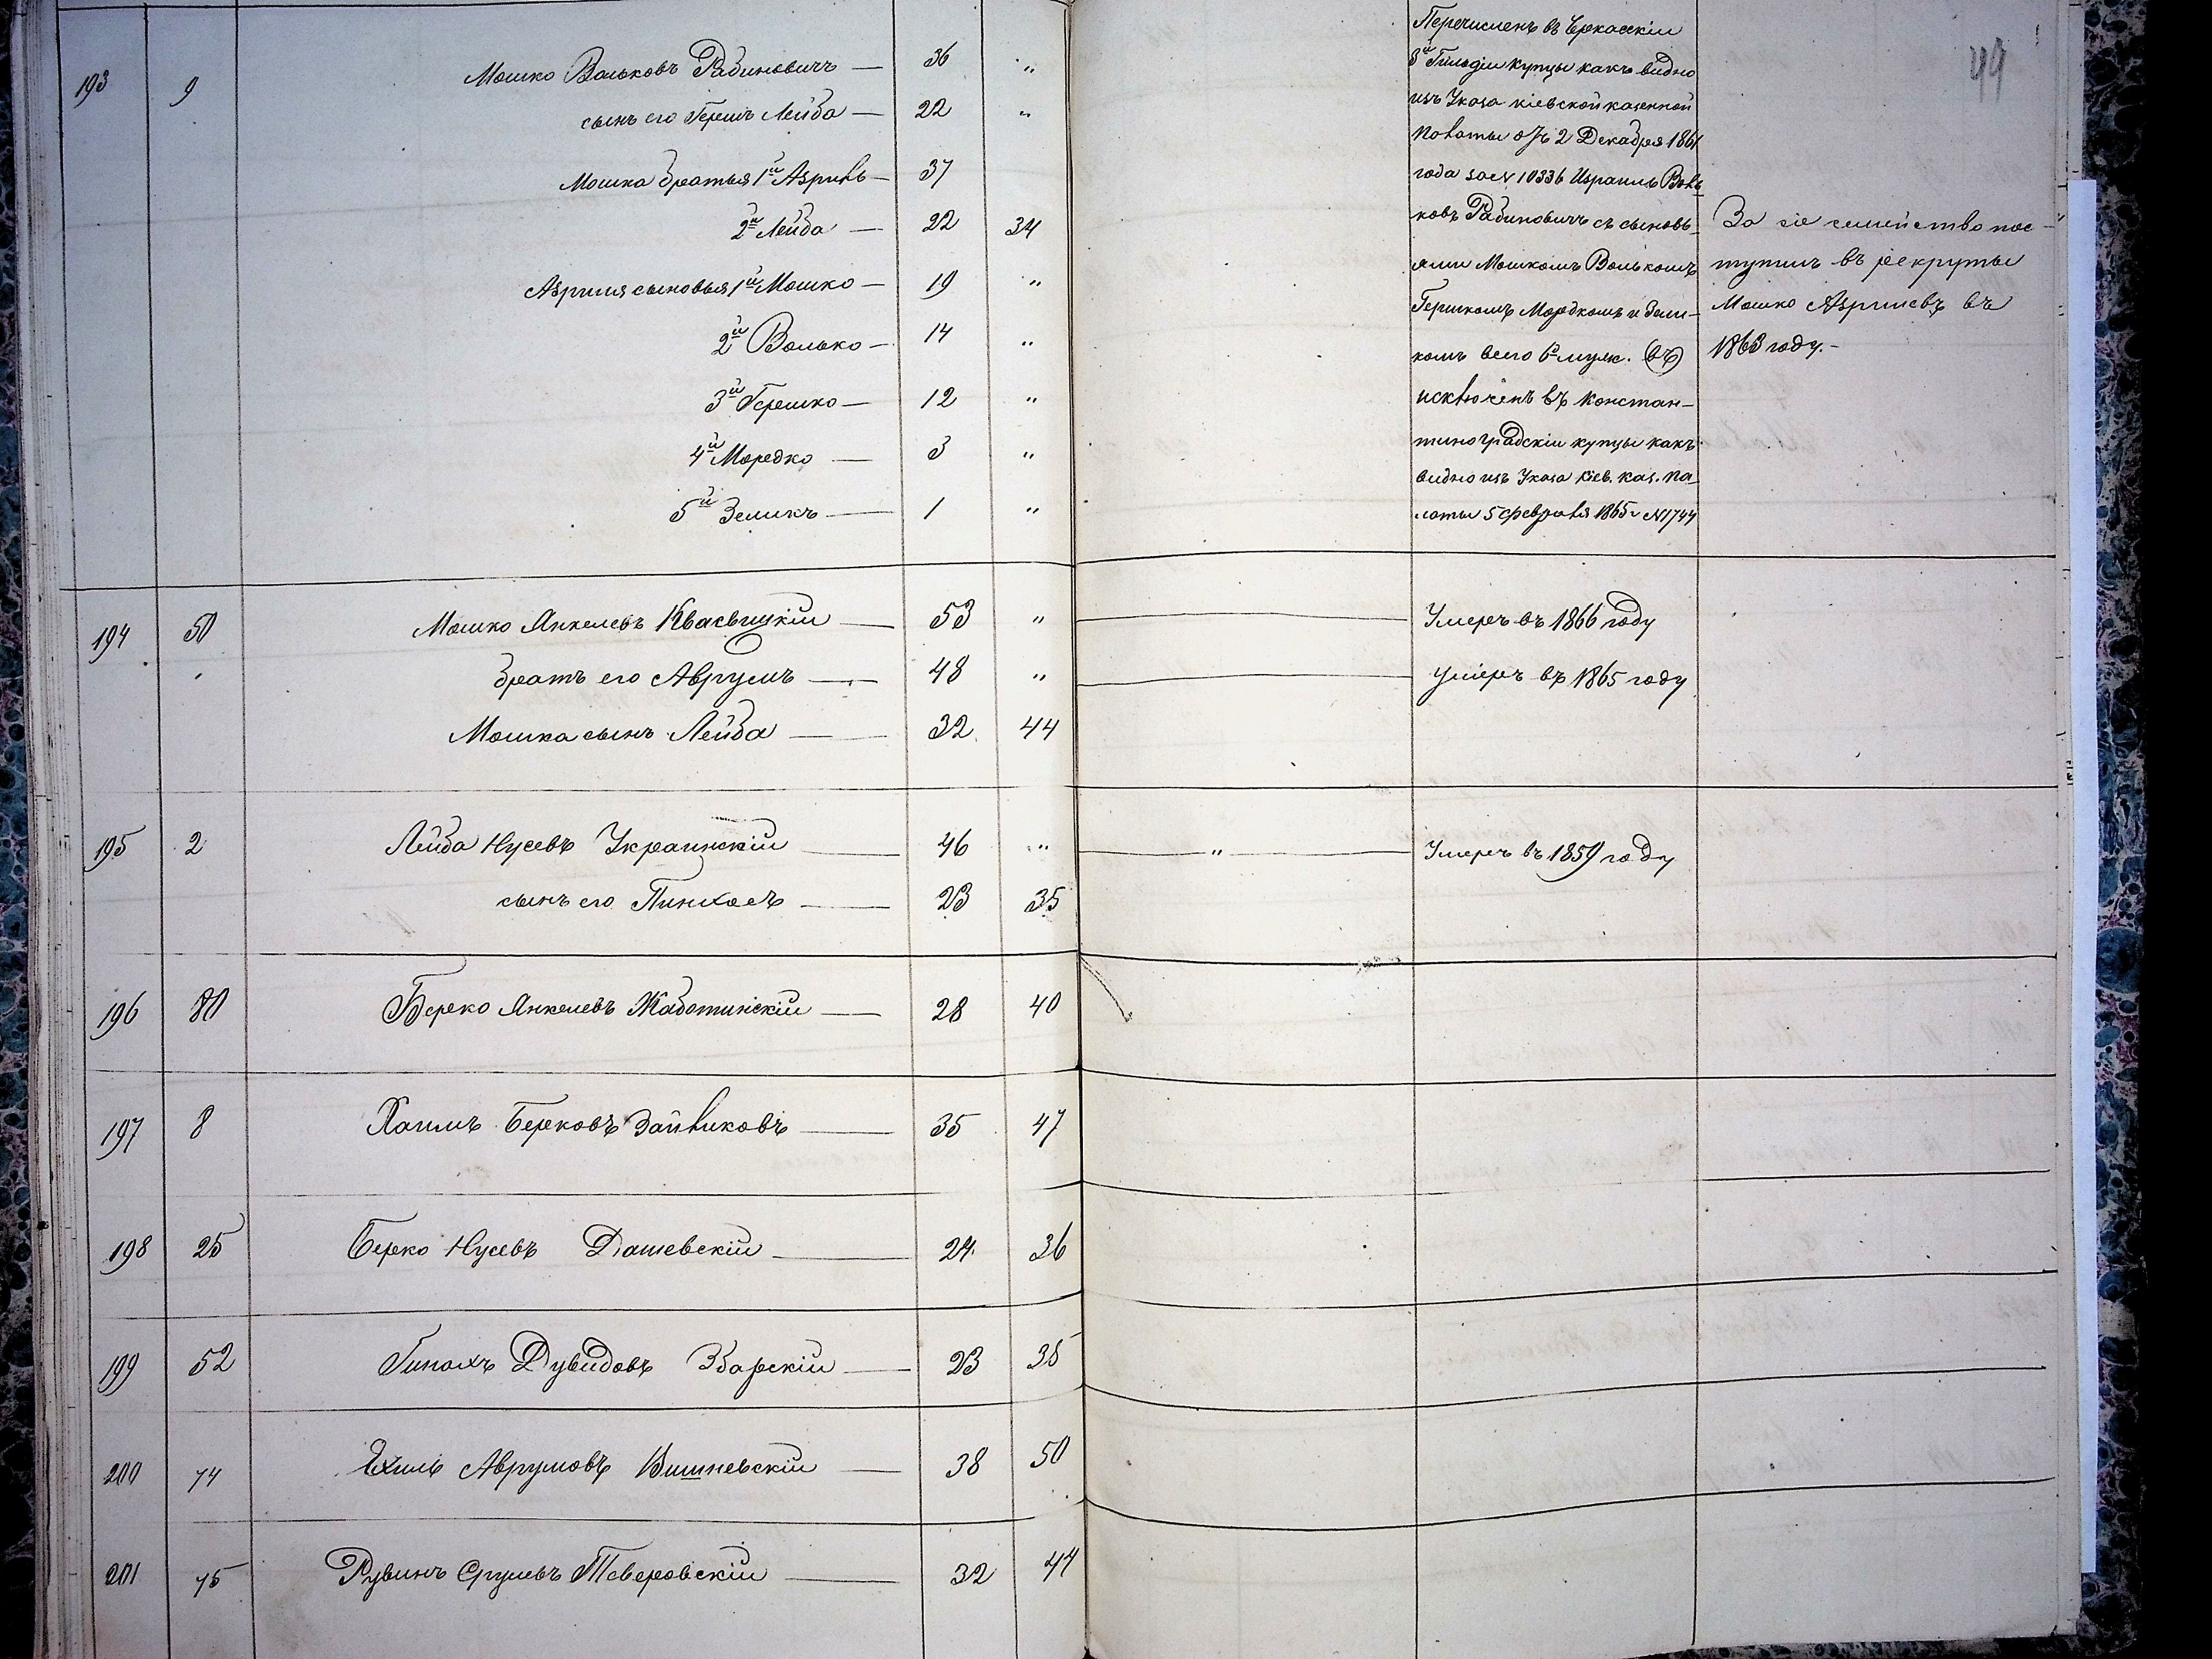 193 9 Мошко Вольковъ Рабиновичъ — 36 "
сынъ его Гершъ Лейба — 22 "
Мошка братья 1й Азриль — 37
2й Лейба — 22 34
Азриля сыновья 1й Мошко — 19 "
2й Волько — 14 "
3й Гершко — 12 "
4й Мордко — 3 "
5й Зеликъ — 1 "
194 50 Мошко Янкелевъ Квасвицкій — 53 "
братъ его Аврумъ — 48 "
Мошка сынъ Лейба — 32 44
195 2 Лейба Нусевъ Украинскій — 46 "
сынъ его Пинхасъ — 23 35
196 80 Берко Янкелевъ Жаботинскій — 28 40
197 8 Хаимъ Берковъ Зайвиковъ — 35 47
198 25 Берко Нусевъ Дашевскій — 24 36
199 52 Дувидовъ Збарскій — 23 35
200 74 Ехиль Аврумовъ Вишневскій — 38 50
201 75 Рувинъ Срулевъ Тверовскій — 32 44
49
Перечисленъ въ Черкасскіи
3й Гильдіи купцы какъ видно
изъ Указа кіевской казенной
Палаты отъ 2 Декабря 1861
года за № 10336 Израиль Воль
ковъ Рабиновичъ съ сыновь-
ями Мошкомъ Волькомъ
Гершкомъ Мордкомъ и Зели-
комъ всего 6 муж.
исключенъ въ констан-
тиноградскіи купцы какъ
видно изъ Указа кіев. каз. па
латы 5 февраля 1865 г №1744
За сіе семейство пос-
тупилъ въ рекруты
Мошко Азрилевъ въ
1863 году.-
— Умеръ въ 1866 году
— Умеръ въ 1865 году
— " — Умеръ въ 1859 году